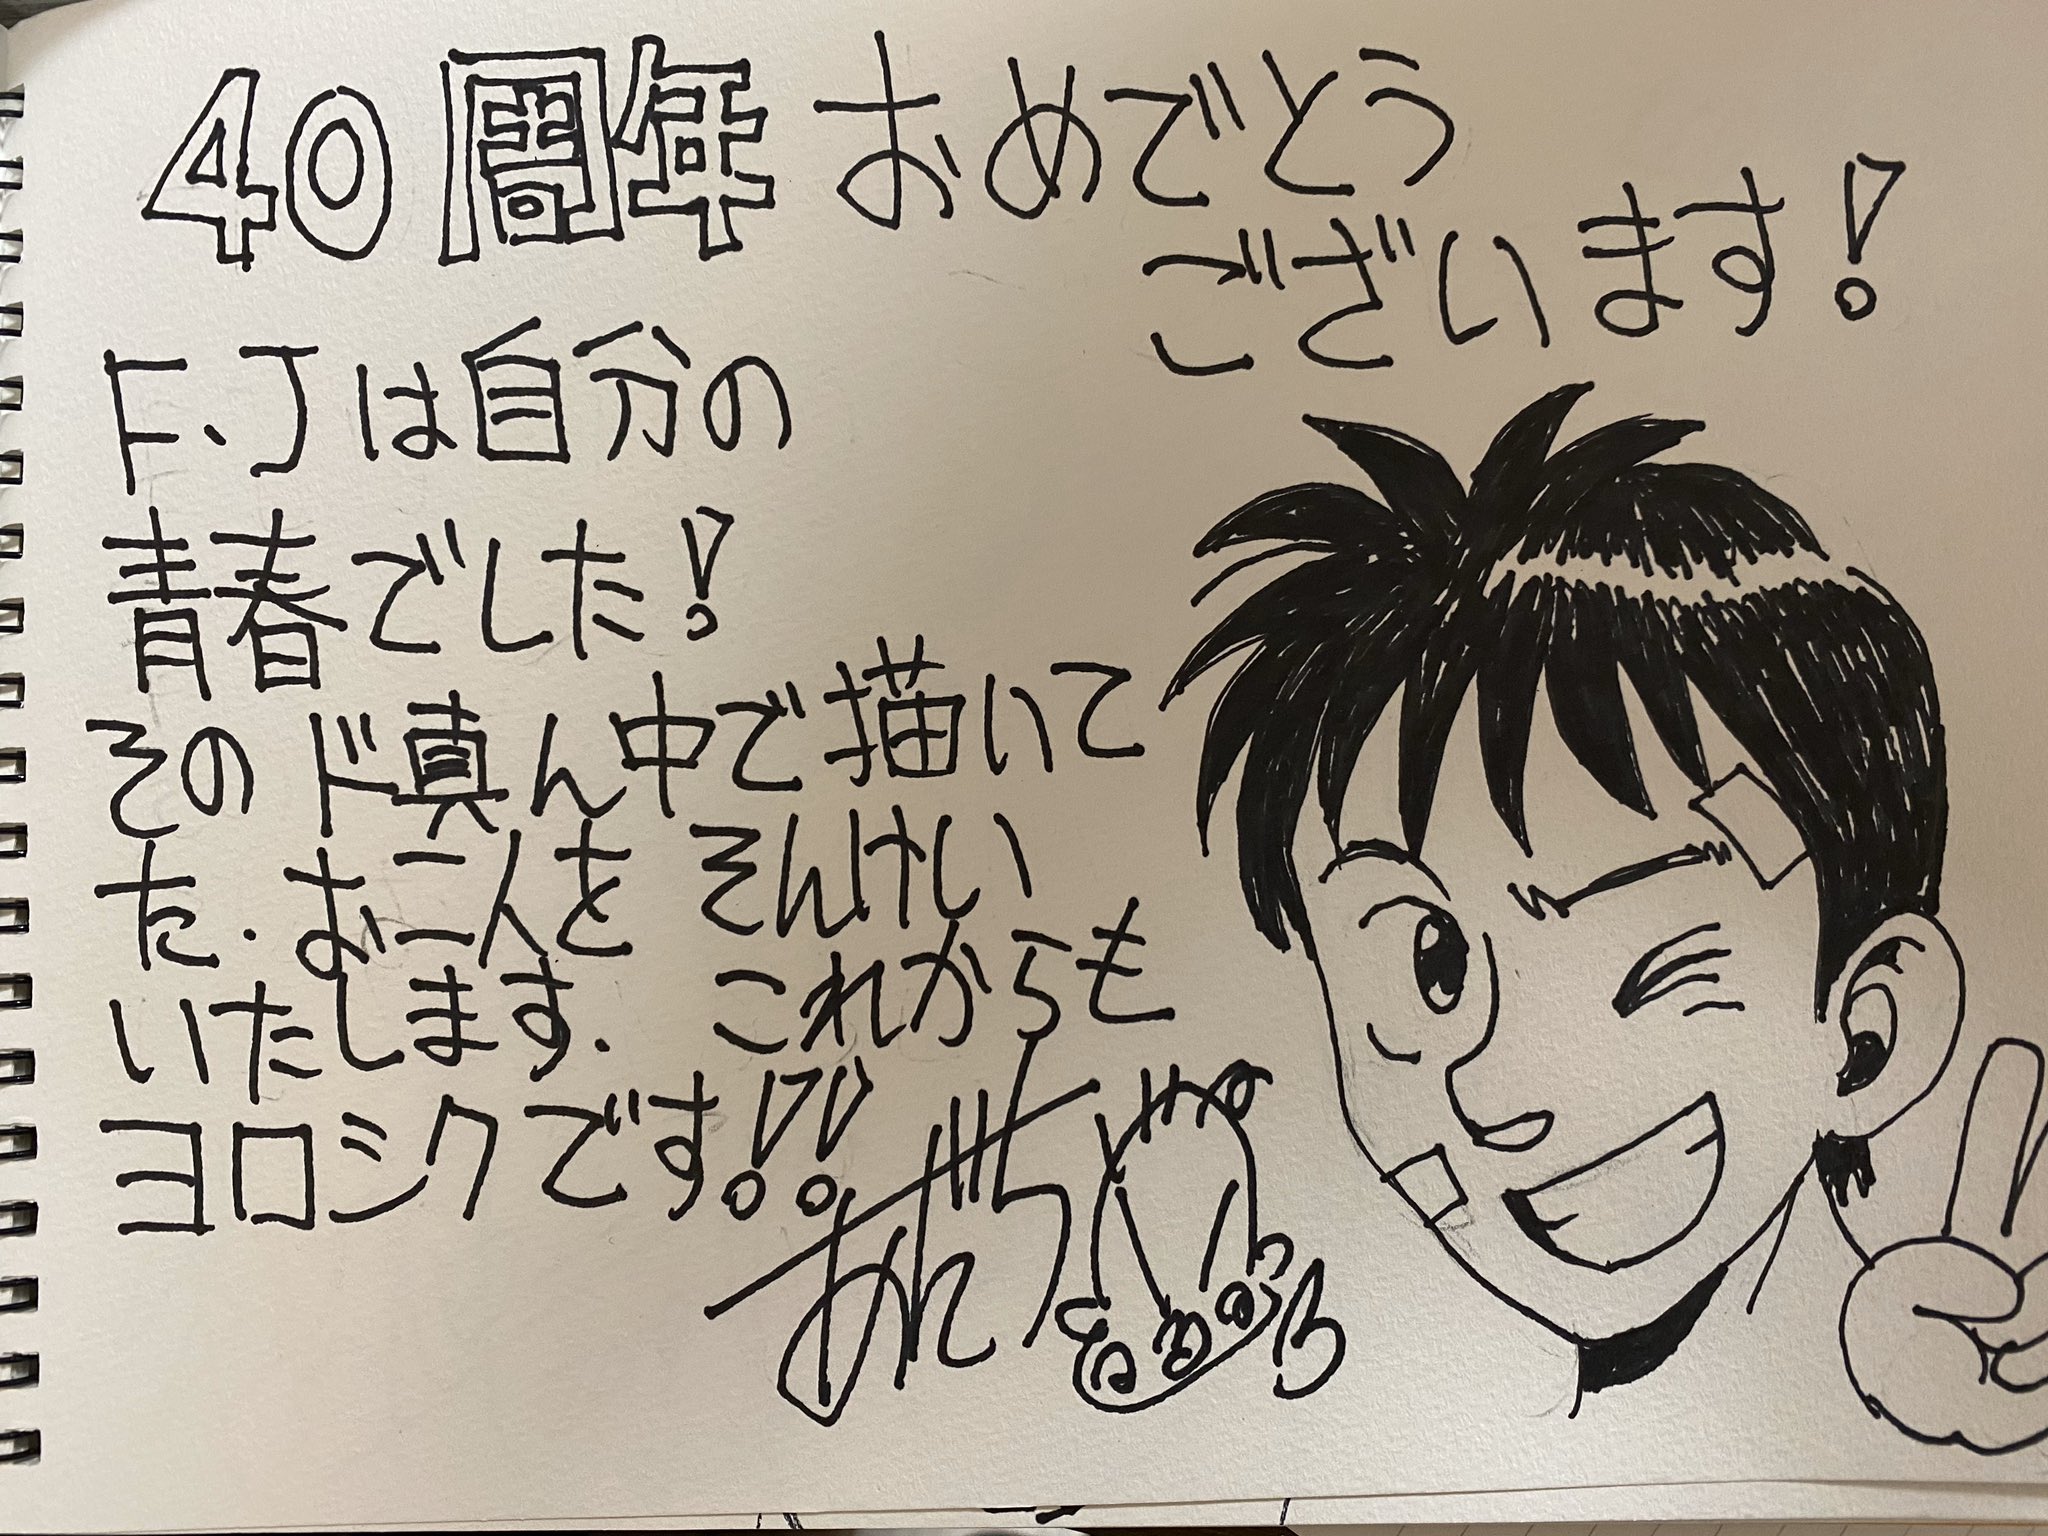 40周年おめでとう
ございます!
F.Jは自分の
青春でした!
そのド真ん中で描いて
た.お二人をそんけい
いたします.これからも
ヨロシクです!!